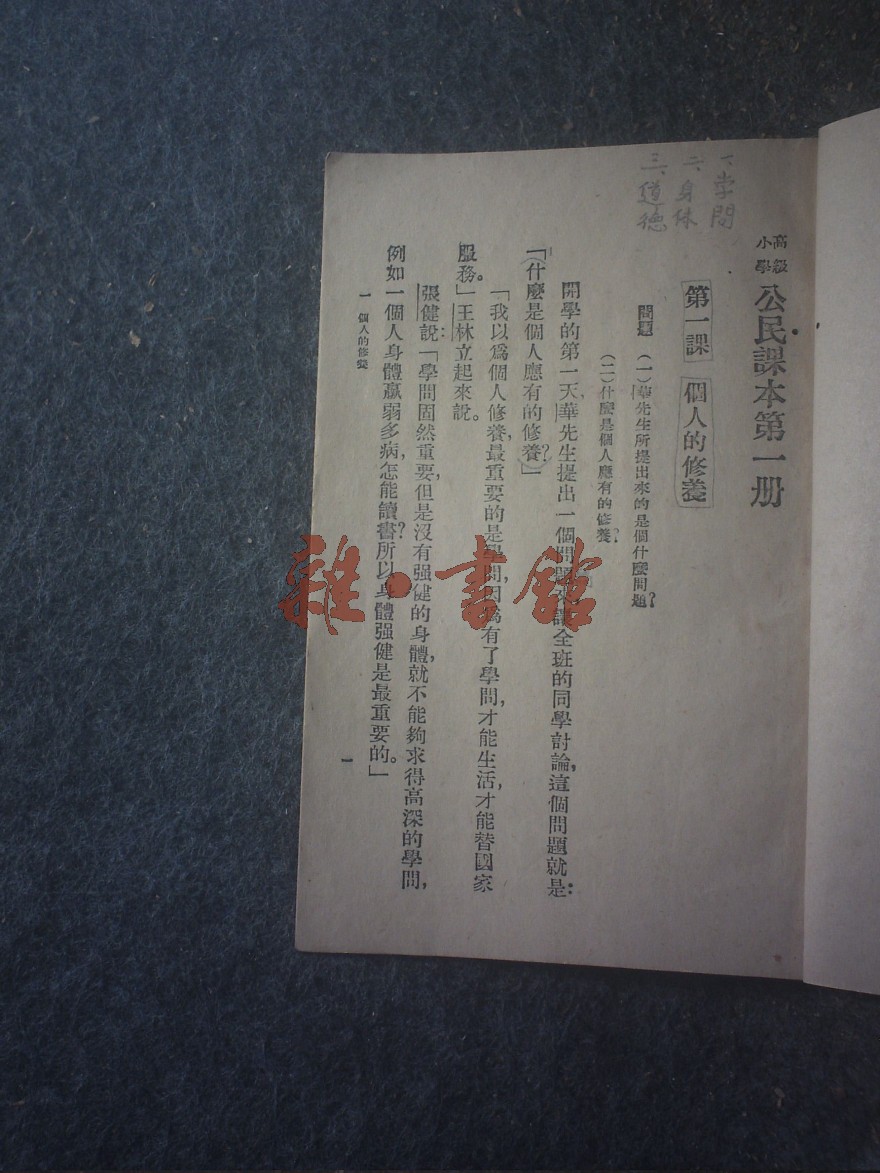 一、学問
二、身体
三、道德
高級
小學
公民課本第一册
第一課 個人的修養
問題 (一)華先生所提出來的是個什麼問題?
(二)什麼是個人應有的修養?
開學的第一天,華先生提出一個問題來,讓全班的同學討論,這個問題就是:
「什麼是個人應有的修養?」
「我以爲個人修養,最重要的是學問,因爲有了學問,才能生活,才能替國家
服務。」王林立起來說。
張健說:「學問固然重要,但是沒有强健的身體,就不能夠求得高深的學問,
例如一個人身體羸弱多病,怎能讀書?所以身體强健是最重要的。」
一 個人的修養
一
雜·書館